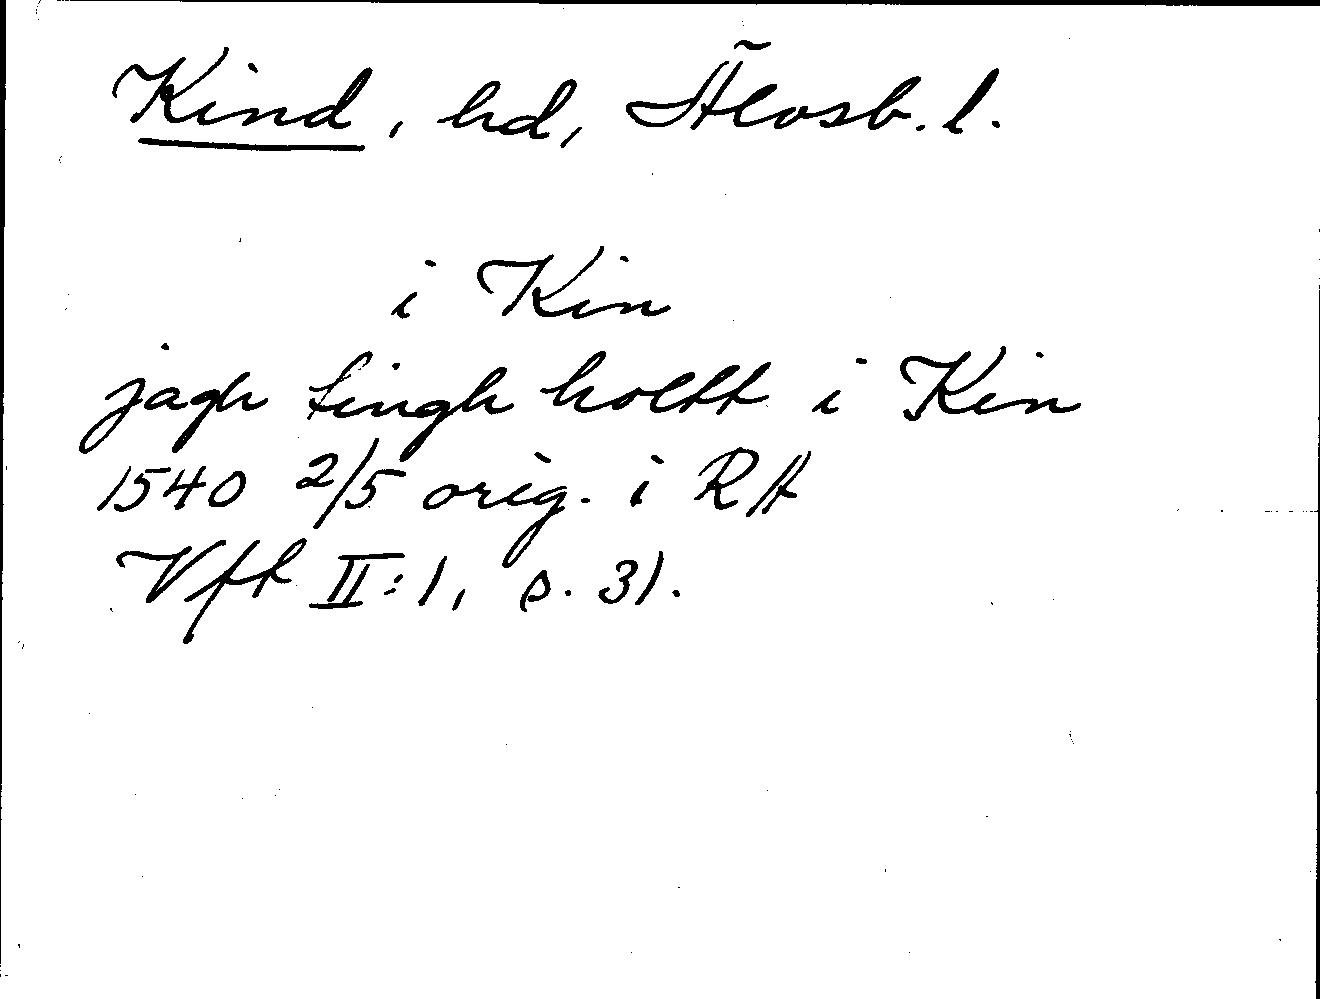 Kind, hd, Älvsb. l.
i Kin
jagh tingh holtt i Kin
1540 2/5 orig. i RA
Vft II:1, s. 31.